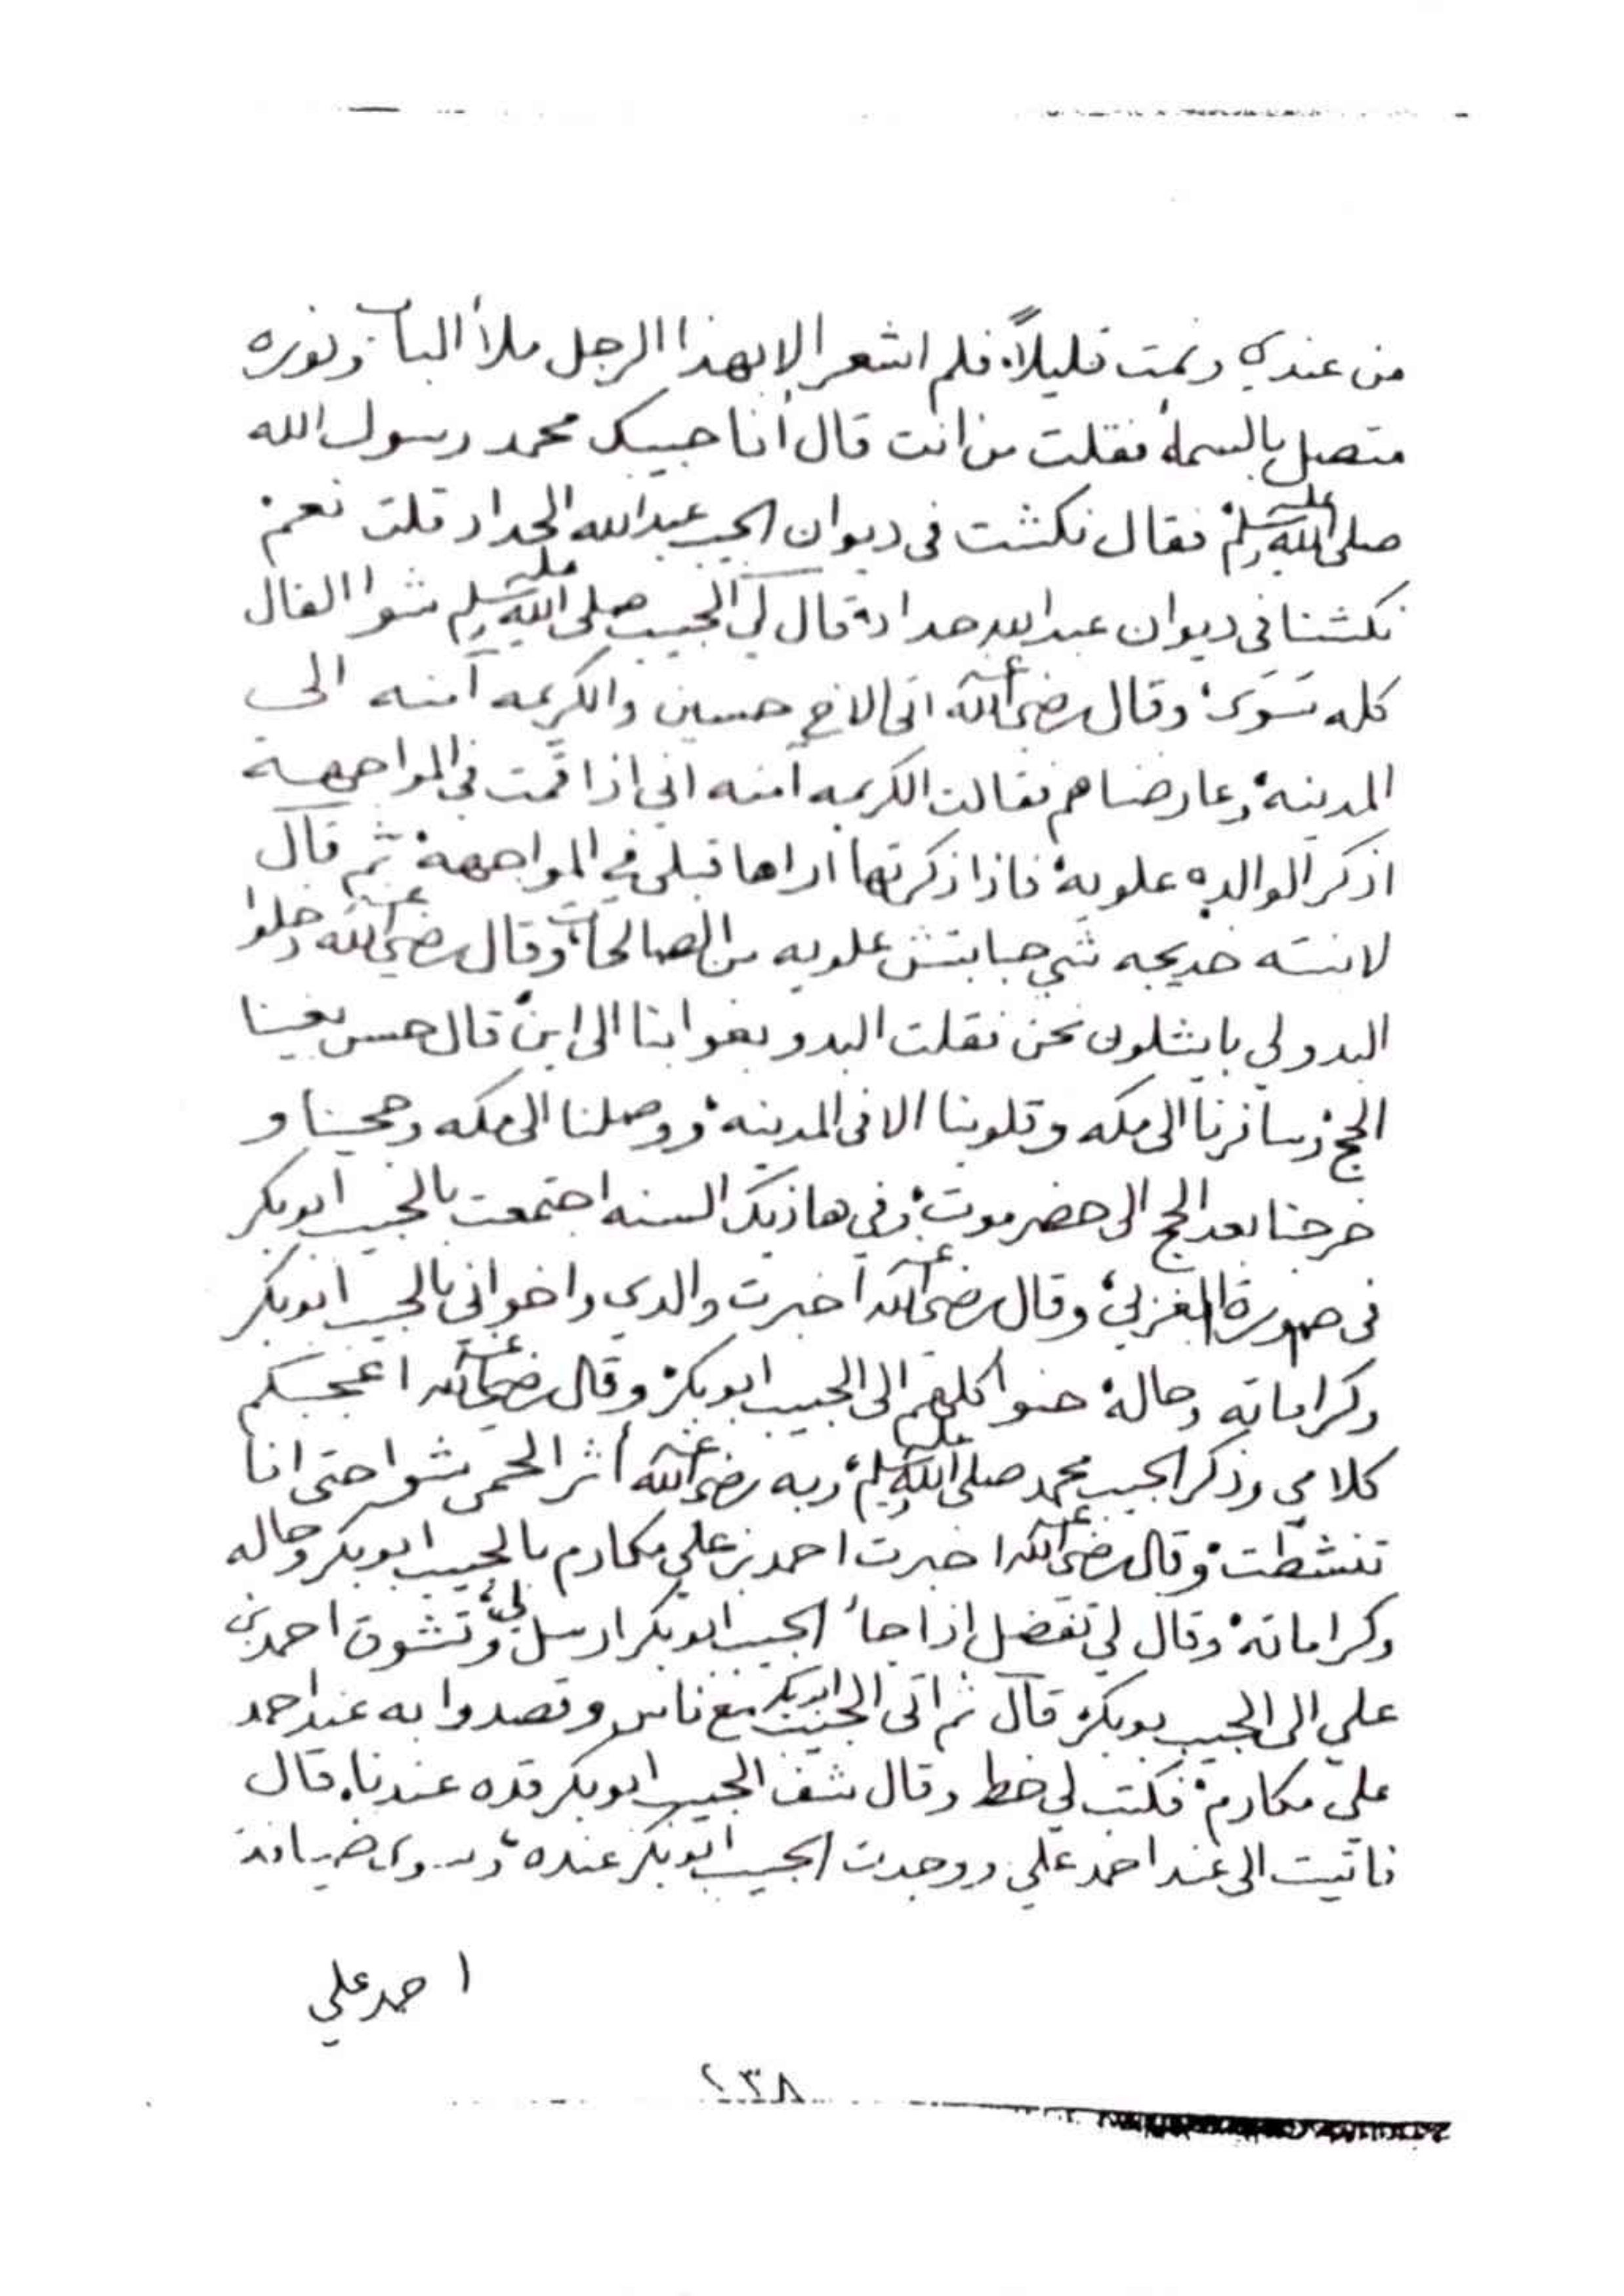 من عندي ونمت قليلاً، فلم اشعر الا بهذا الرجل ملأ الباب ونوره
متصل بالسماء فقلت من انت قال أنا حبيبك محمد رسول الله
صلى الله عليه وسلم فقال نكشت في ديوان الحبيب عبدالله الحداد قلت نعم
نكشنا في ديوان عبدالله حداد، قال لي الحبيب صلى الله عليه وسلم شوا الفال
كله سَوَى، وقال رضي الله عنه اتى الاخ حسين والكريمه آمنه الى
المدينه، وعارضناهم فقالت الكريمه آمنه اني اذا قمت في المواجهة
اذكر الوالده علويه، فاذا ذكرتها اراها قبلي في المواجهة، ثم قال
لابنته خديجه شي حبابتش علويه من الصالحات، وقال رضي الله عنه دخلوا
البدو لي بايشلون نحن فقلت البدو بغوا بنا الى اين، قال حسن بغينا
الحج، وسافرنا الى مكه وقلوبنا الا في المدينه، ووصلنا الى مكه وحجينا و
خرجنا بعد الحج الى حضرموت، وفي هاذيك السنه اجتمعت بالحبيب ابوبكر
في صورة المغربي، وقال رضي الله عنه اخبرت والدي واخواني بالحبيب ابوبكر
وكراماته وحاله، حنوا كلهم الى الحبيب ابوبكر، وقال رضي الله عنه اعجبكم
كلامي وذكر الحبيب محمد صلى الله عليه وسلم، وبه رضي الله عنه أثر الحمى شوا حتى انا
تنشطت، وقال رضي الله عنه اخبرت احمد بن علي مكارم بالحبيب ابوبكر وحاله
وكراماته، وقال لي تفضل اذا جاء الحبيب ابوبكر ارسل لي، وتشوق احمد بن
علي الى الحبيب بوبكر، قال ثم اتى الحبيب ابوبكر مع ناس وقصدوا به عند احمد
علي مكارم، فكتب لي خط وقال شف الحبيب ابوبكر قده عندنا، قال
فاتيت الى عند احمد علي ووجدت الحبيب ابوبكر عنده، وسوى ضيافة
احمد علي
٢٣٨